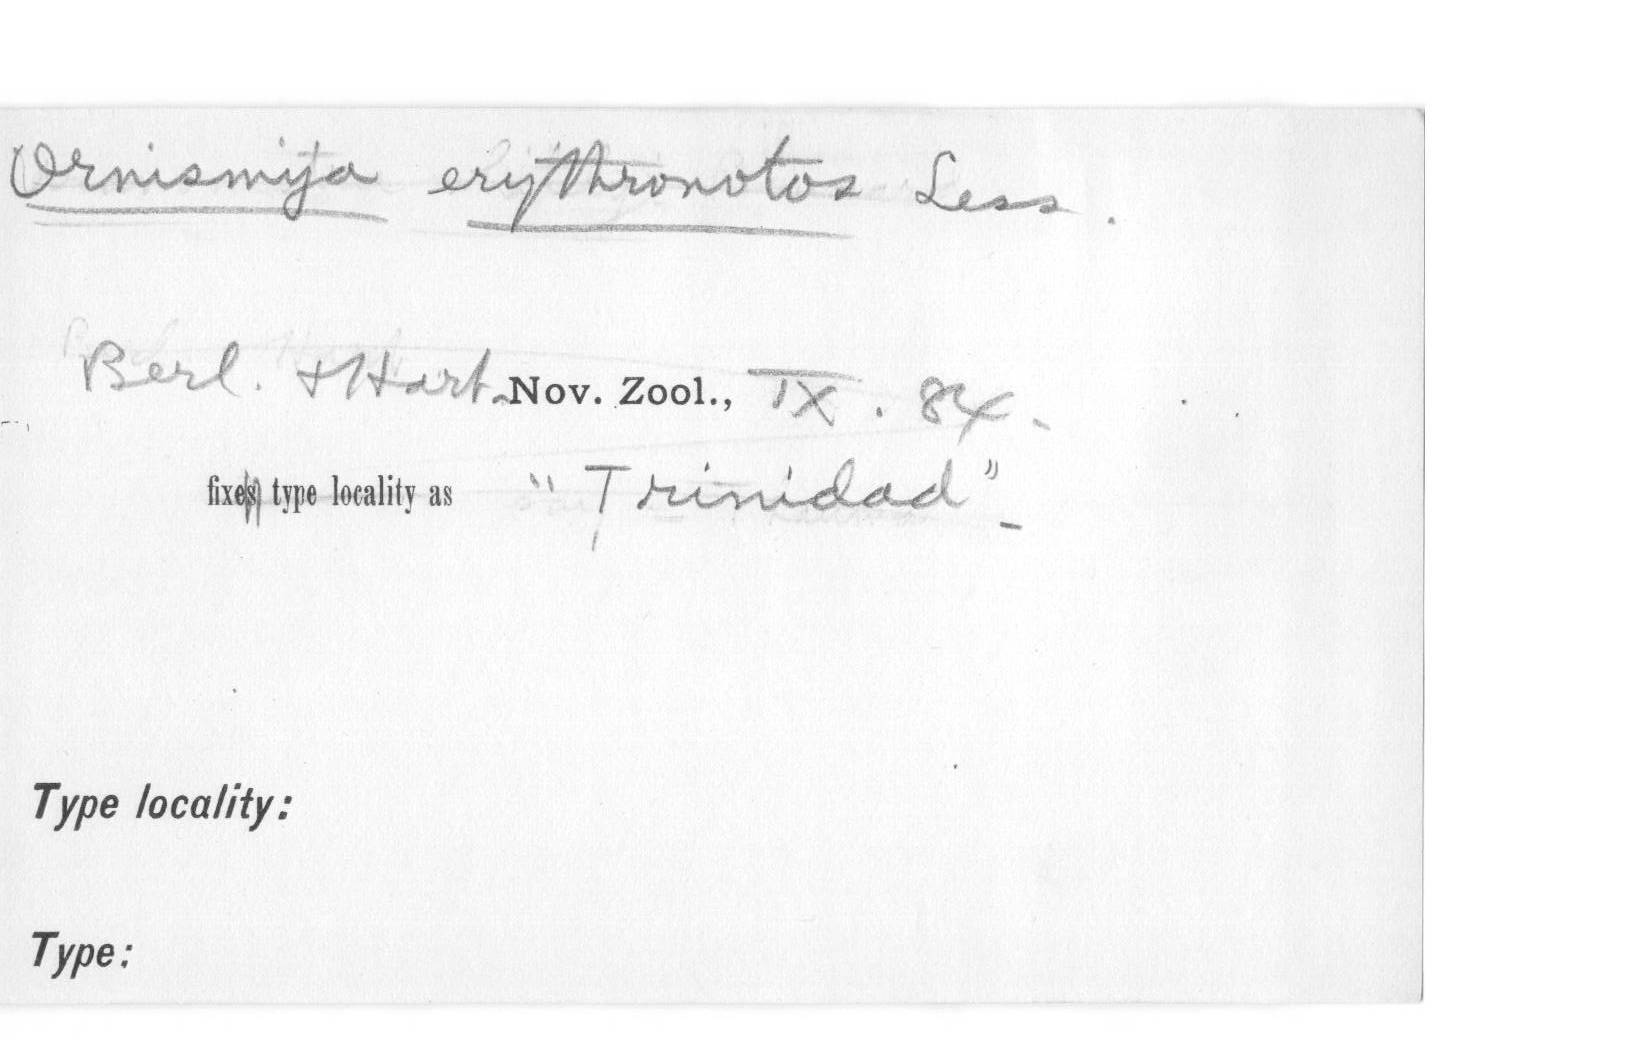 Ornismya erythronotos Less.
Berl. & Hart. Nov. Zool., IX. 84.
fixes type locality as "Trinidad"
Type locality:
Type: